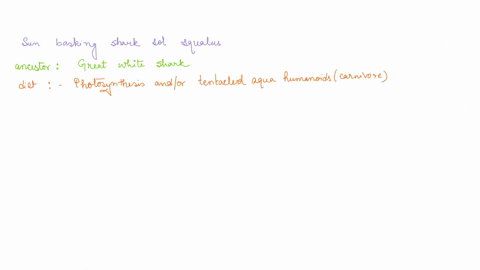 Sun basking shark sol squalus
ancestor: Great white shark
diet :- Photosynthesis and/or tentacled aqua humanoids (carnivore)